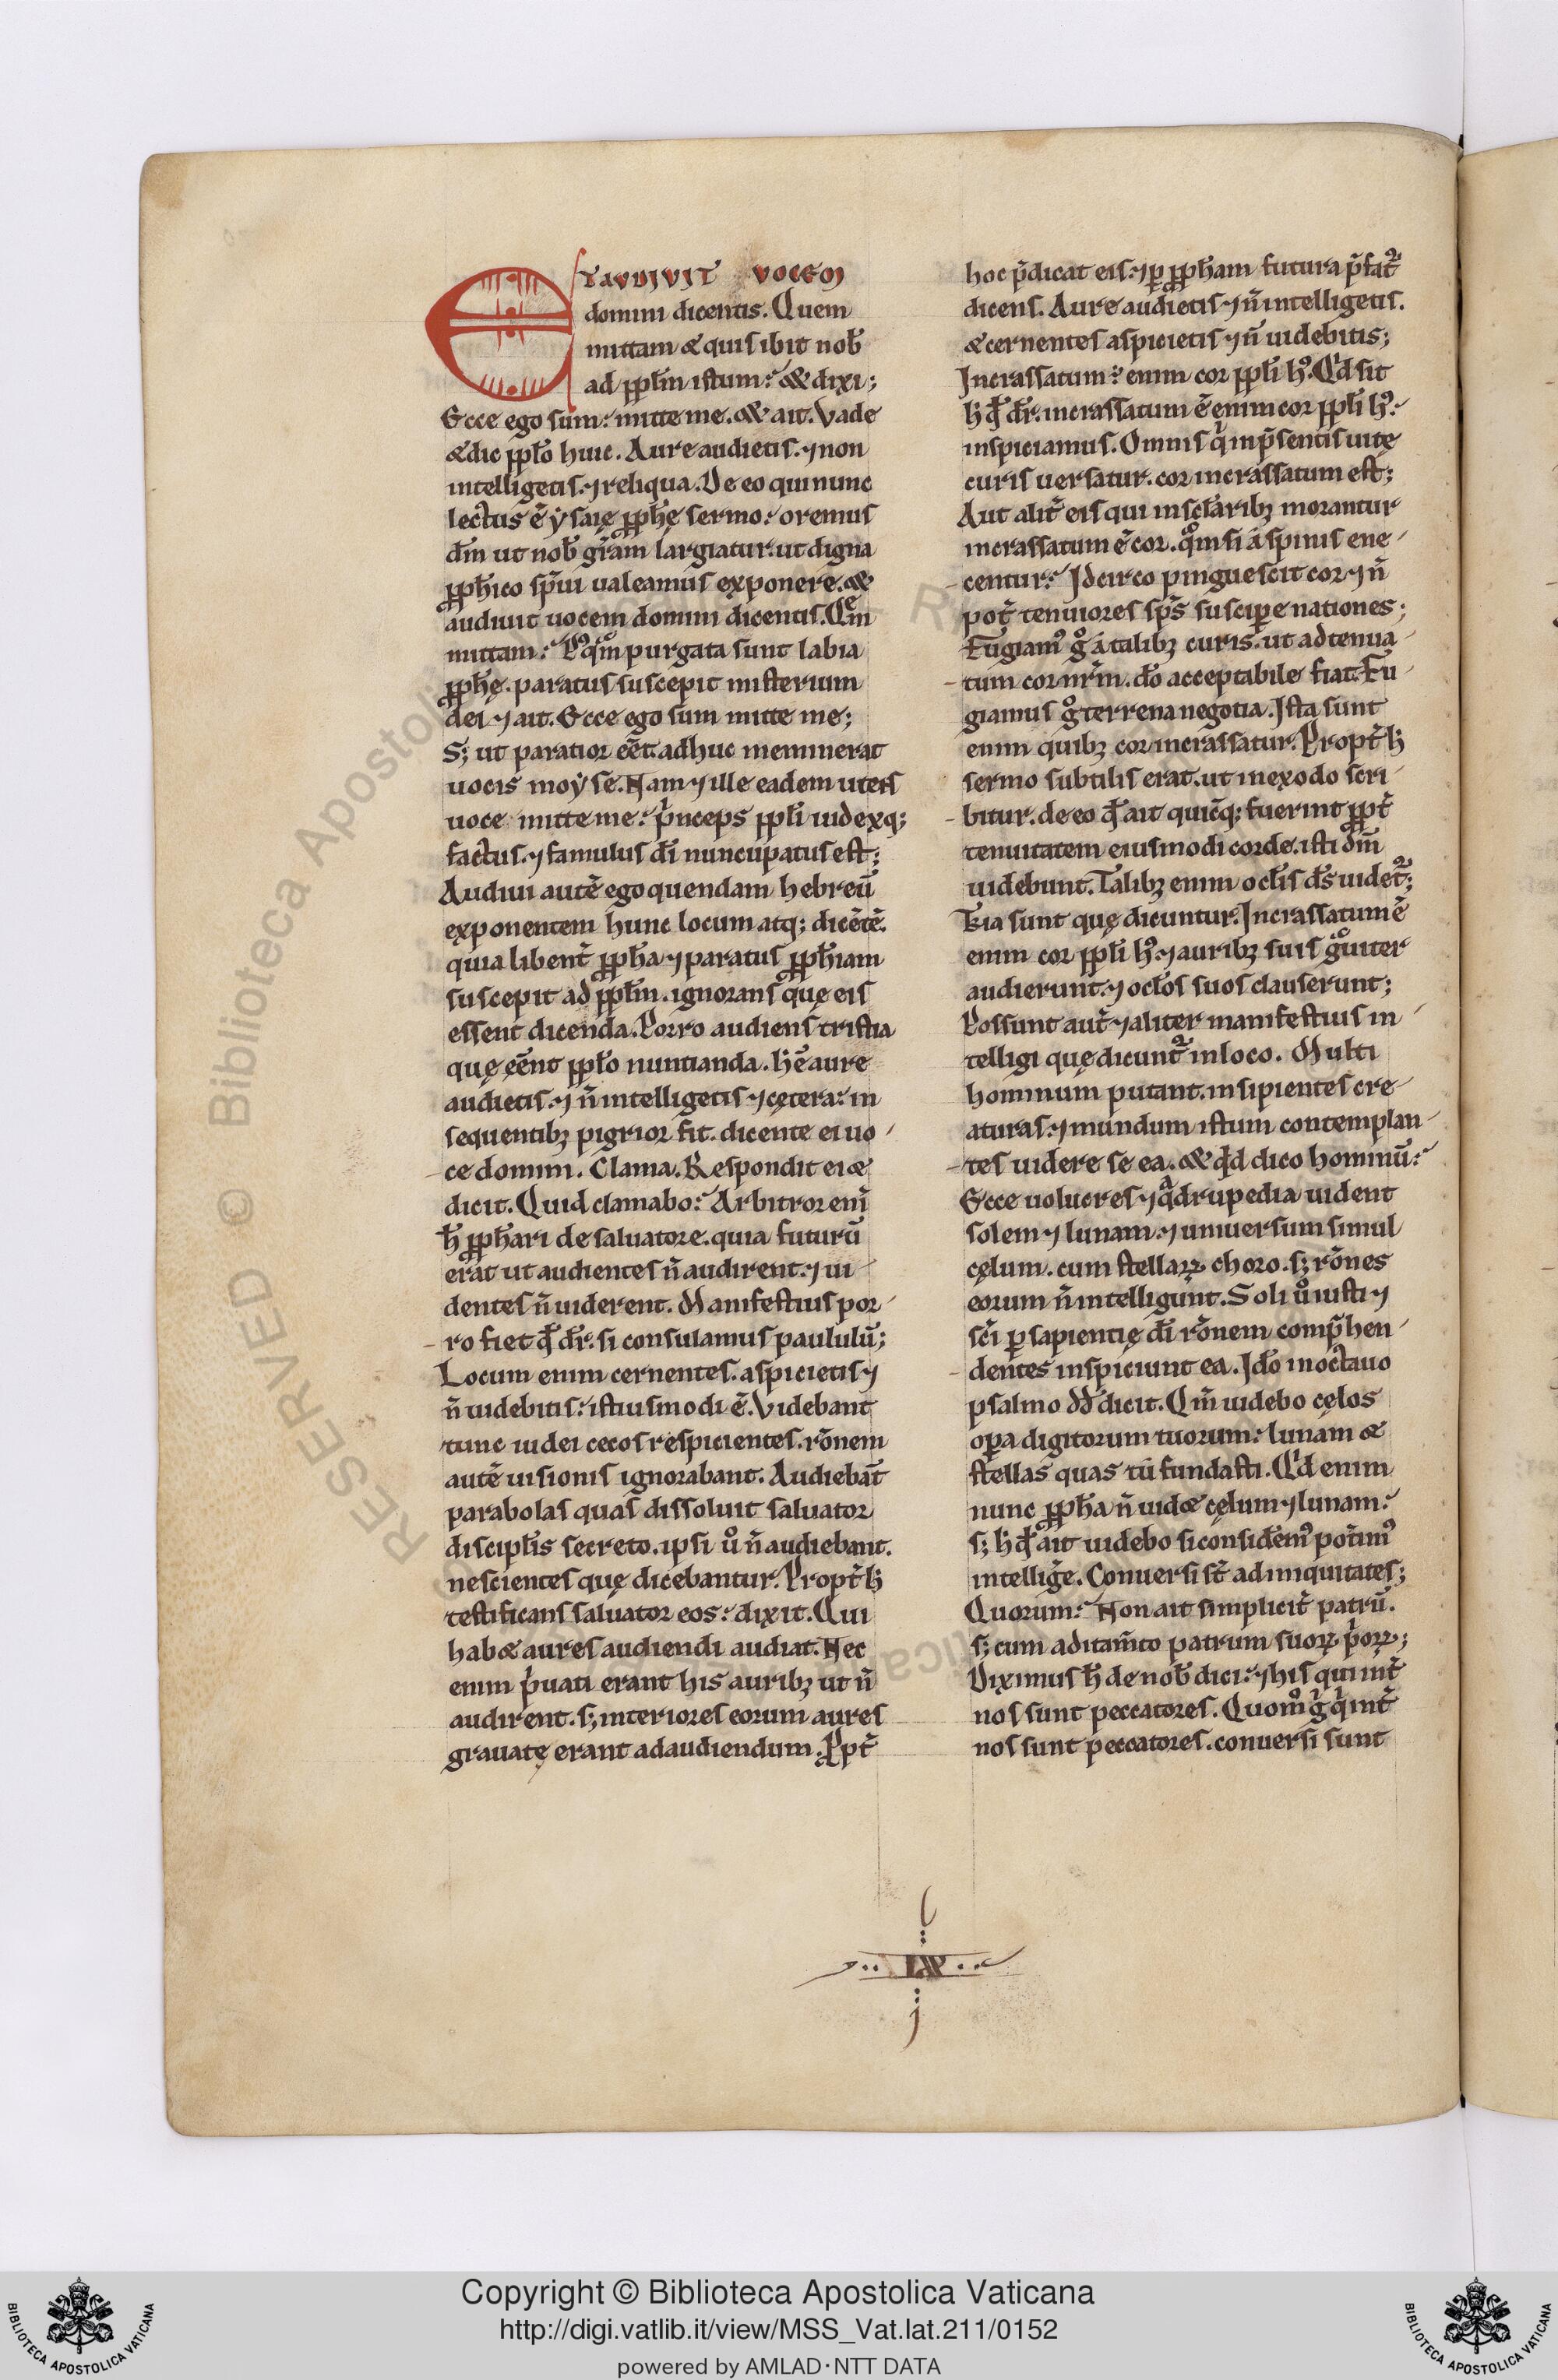 ET AUDIVIT VOCEM
domini dicentis. Quem
mittam & quis ibit nob̄
ad pp̄lm istum? & dixi;
Ecce ego sum. mitte me. & ait. Vade
& dic pp̄lo huic. Aure audietis. ⁊ non
intelligetis. ⁊ reliqua. De eo qui nunc
lectus ē ẏsaię pp̄hę sermo. oremus
dm̄ ut nob̄ gr̄am largiatur. ut digna
pp̄hico sp̄ui ualeamus exponere. &
audiuit uocem domini dicentis. Quē
mittam? Pꝰq̊m purgata sunt labia
pp̄hę. paratus suscepit misterium
dei ⁊ ait. Ecce ego sum mitte me;
S; ut paratior eēt. adhuc meminerat
uocis moẏse. Nam ⁊ ille eadem utens
uoce mitte me. p̄nceps pp̄li iudexq;
factus. ⁊ famulus dī nuncupatus est;
Audiui autē ego quendam hebreū
exponentem hunc locum atq; dicētē.
quia libent̄ pp̄ha ⁊ paratus pp̄hiam
suscepit ad pp̄lm. ignorans quę eis
essent dicenda. Porro audiens tristia
quę eēnt pp̄lo nuntianda. h̄ ē aure
audietis. ⁊ n̄ intelligetis ⁊ cętera. in
sequentibꝫ pigrior fit. dicente ei uo-
ce domini. Clama. Respondit ei &
dicit. Quid clamabo? Arbitror enī
h̄ pp̄hari de saluatore. quia futurū
erat ut audientes n̄ audirent. ⁊ ui-
dentes n̄ uiderent. Manifestius por-
ro fiet qd̄ dr̄. si consulamus paululū;
Locum enim cernentes. aspicietis ⁊
n̄ uidebitis. istiusmodi ē. Videbant
tunc iudei cecos respicientes. rōnem
autē uisionis ignorabant. Audiebāt
parabolas quas dissoluit saluator
discipl̄is secreto. ipsi ů n̄ audiebant.
nescientes quę dicebantur. Propt̄ h̄
testificans saluator eos. dixit. Qui
hab& aures audiendi audiat. Nec
enim p̄uati erant his auribꝫ ut n̄
audirent. s; interiores eorum aures
grauatę erant ad audiendum. Ppt̄
hoc p̄dicat eis. ⁊ p̱ pp̄ham futura p̄fat᷑
dicens. Aure audietis ⁊ n̄ intelligetis.
& cernentes aspicietis ⁊ n̄ uidebitis;
Incrassatum ē enim cor pp̄li hꝰ. Qd̄ sit
h̄ qd̄ dr̄. incrassatum ē enim cor pp̄li hꝰ.
inspiciamus. Omnis qⁱ in p̄sentis uitę
curis uersatur. cor incrassatum est;
Aut alit̄ eis qui in sc̄laribꝫ morantur
incrassatum ē cor. q̊m si a spinis ene-
centur. Idcirco pinguescit cor ⁊ n̄
pot̄ tenuiores sp̄s suscip̱e nationes;
Fugiamꝰ g̊ a talibꝫ curis. ut adtenua-
tum cor nr̄m. do acceptabile fiat. Fu-
giamus g̊ terrena negotia. Ista sunt
enim quibꝫ cor incrassatur. Propt̄ h̄
sermo subtilis erat. ut in exodo scri-
bitur. de eo qd̄ ait quicq; fuerint ppt̄
tenuitatem eiusmodi corde. isti dm̄
uidebunt. Talibꝫ enim ocl̄is ds̄ uidet᷑;
T̄cia sunt quę dicuntur. Incrassatum ē
enim cor pp̄li hꝰ. ⁊ auribꝫ suis g̊uiter
audierunt. ⁊ ocl̄os suos clauserunt;
Possunt aut̄ ⁊ aliter manifestius in-
telligi quę dicunt᷑ in loco. Multi
hominum putant. insipientes cre-
aturas. ⁊ mundum istum contemplan-
tes uidere se ea. & qd̄ dico hominū?
Ecce uolucres ⁊ qᵃdrupedia uident
solem ⁊ lunam. ⁊ uniuersum simul
cęlum. cum stellaꝝ choro. s; rōnes
eorum n̄ intelligunt. Soli ů iusti ⁊
sc̄i p̱ sapientię dī rōnem comp̄hen-
dentes inspiciunt ea. Ido in octauo
psalmo dd̄ dicit. Qm̄ uidebo cęlos
op̱a digitorum tuorum. lunam &
stellas quas tū fundasti. Qd̄ enim
nunc pp̄ha n̄ uid& cęlum ⁊ lunam?
s; h̄ qd̄ ait uidebo si consid̄emꝰ pot̄imꝰ
intelliḡe. Conuersi st̄ ad iniquitates;
Quorum? Non ait simplicit̄ patrū.
s; cum aditam̄to patrum suoꝝ p̄oꝝ;
Diximus h̄ de nob̄ dici. ⁊ his qui int̄
nos sunt peccatores. Quom̊ g̊ qⁱ int̄
nos sunt peccatores. conuersi sunt
IX
RESERVED © Biblioteca Apostolica Vaticana
Copyright © Biblioteca Apostolica Vaticana
http://digi.vatlib.it/view/MSS_Vat.lat.211/0152
powered by AMLAD·NTT DATA
BIBLIOTECA APOSTOLICA VATICANA
BIBLIOTECA APOSTOLICA VATICANA